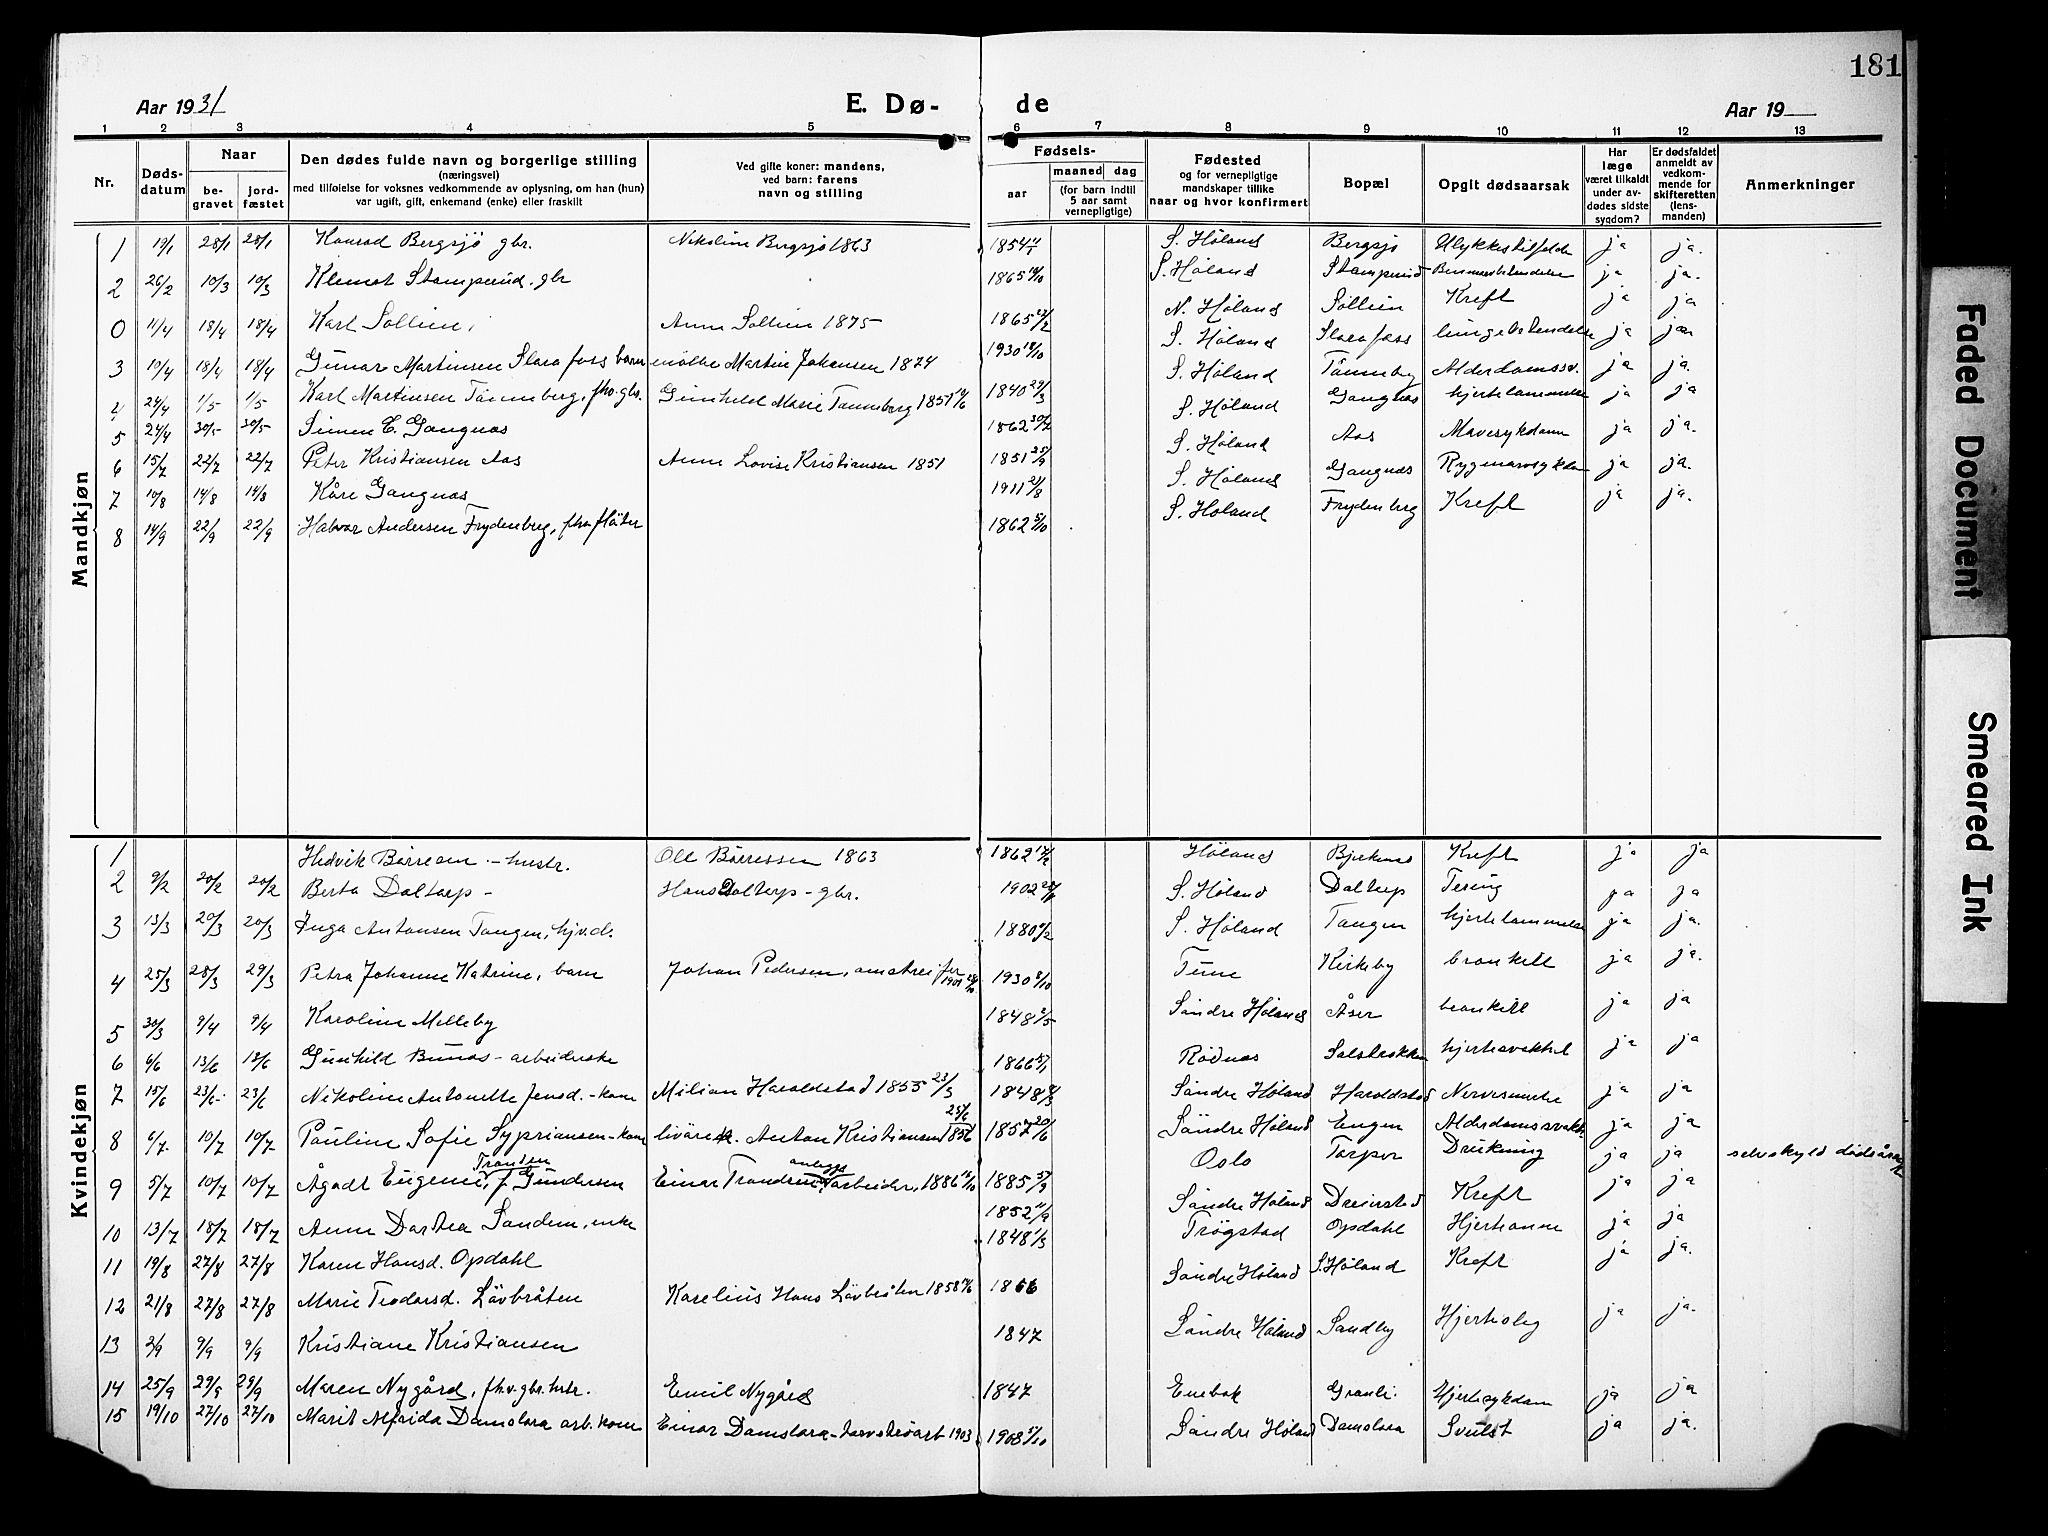 181
Aar 1931 E. Dø- de Aar 19
1 2 3 4 5 6 7 8 9 10 11 12 13
Nr. Døds-datum Naar be-gravet jord-fæstet Den dødes fulde navn og borgerlige stilling (næringsvei) med tilføielse for voksnes vedkommende av oplysning, om han (hun) var ugift, gift, enkemand (enke) eller fraskilt Ved gifte koner: mandens, ved barn: farens navn og stilling Fødsels- aar maaned dag (for barn indtil 5 aar samt vernepligtige) Fødested og for vernepligtige mandskaper tillike naar og hvor konfirmert Bopæl Opgit dødsaarsak Har læge været tilkaldt under av-dødes sidste sygdom? Er dødsfaldet anmeldt av vedkom-mende for skifteretten (lens-manden) Anmerkninger
Mandkjøn
1 19/1 28/1 28/1 Konrad Bergsjø gbr. Nikoline Bergsjø 1863 1854 S. Høland Bergsjø Ulykkestilfelde ja ja.
2 26/2 10/3 10/3 Klemet Stamperud. gbr 1865 S. Høland Stamperud ja ja.
0 11/4 18/4 18/4 Karl Sollien, Anne Sollien 1875 1865 N. Høland Sollien Kreft ja ja
3 10/4 18/4 18/4 Gunar Martinsen Slorafoss barn Martin Johansen 1874 1930 S. Høland Slorafoss ja ja
4 24/4 1/5 1/5 Karl Martinsen Tønneberg, fhv. gbr. Gunhild Marie Tønneberg 1851 1840 29/3 S. Høland Tønneby Alderdomssv. ja ja.
5 24/4 30/5 30/5 Simen E. Gangnæs 1862 S. Høland Gangnæs hjertelammelse ja ja
6 15/7 22/7 22/7 Peter Kristiansen Aas Anne Lovise Kristiansen 1851 1851 25/9 S. Høland Aas Mavesykdom ja ja.
7 10/8 14/8 14/8 Kåre Gangnæs 1911 S. Høland Gangnæs ja ja.
8 14/9 22/9 22/9 Halvor Andersen Frydenberg, fhv. fløter 1862 5/10 S. Høland Frydenberg Kreft ja ja.
Kvindekjøn
1 Hedvik Børresen - hustr. Ole Børressen 1863 1862 Høland Bjerkenes Kreft ja ja
2 9/2 20/2 20/2 Berta Daltorp - Hans Daltorp - gbr. 1902 S. Høland Daltorp Tering ja ja
3 13/3 20/3 20/3 Inga Antonsen Tangen, hjv.d. 1880 S. Høland Tangen hjertelammelse ja ja.
4 25/3 28/3 29/3 Petra Johanne Katrine, barn Johan Pedersen, 1901 1930 8/10 Tune Kirkeby bronkitt ja ja.
5 30/3 9/4 9/4 Karoline Melleby 1848 Søndre Høland Åser bronkitt ja ja
6 6/6 13/6 13/6 Gunhild Bunæs - arbeiderske 1866 Rødnæs ja ja
7 15/6 23/6 23/6 Nikoline Antonette Jensd. - kone Milian Haroldstad 1855 23/3 1848 Søndre Høland Haroldstad ja ja
8 6/7 10/7 10/7 Pauline Sofie Sypriansen - kone Anton Kristiansen 1856 25/6 1857 20/6 Søndre Høland Engen Alderdomssvakh. ja ja
9 5/7 10/7 10/7 Ågodt Eugenie Tronsen f. Gundersen Einar anleggsarbeider, 1886 1885 Oslo Torper Drukning ja ja
10 13/7 18/7 18/7 Anne Dortea Sandem, enke 1852 11/9 Søndre Høland Kreft ja ja
11 19/8 27/8 27/8 Karen Hansd. Opdahl 1848 1/3 Trøgstad Opdahl ja ja
12 21/8 27/8 27/8 Marie Teodorsd. Løvbråten Karelius Hans Løvbråten 1858 1866 Søndre Høland S. Høland Kreft ja ja.
13 2/9 9/9 9/9 Kristiane Kristiansen 1847 Søndre Høland Sandby ja ja.
14 25/9 29/9 29/9 Maren Nygård, fhv. gbr. hstr. Emil Nygård 1847 Enebak Granli. Hjertesykdom ja ja
15 19/10 27/10 27/10 Marit Alfrida Damslora arb. kone Einar Damslora 1903 1908 Søndre Høland Damslora Svulst ja ja.
Faded Document
Smeared Ink